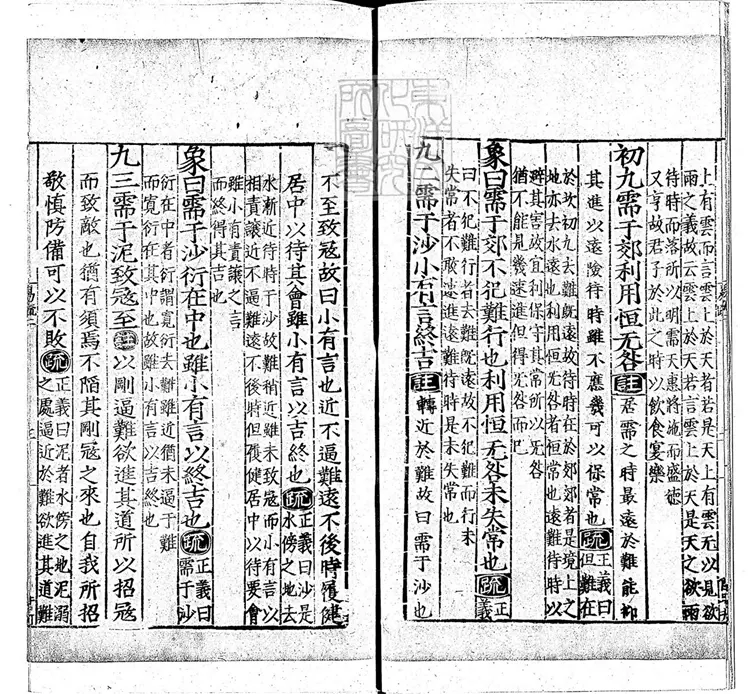 上有雲而言雲上於天者若是天上有雲无以見欲
雨之義故云雲上於天若言雲上於天是天之欲雨
待時而落所以明需天惠將施而盛德
又亨故君子於此之時以飲食宴樂
初九需于郊利用恒无咎註居需之時最遠於難能抑
其進以遠險待時雖不應幾可以保常也疏正義曰但難在
於坎初九去難既遠故待時在於郊郊者是境上之
地亦去水遠也利用恒无咎者恒常也遠難待時以
避其害故宜利保守其常所以无咎
猶不能見幾速進但得无咎而已
象曰需于郊不犯難行也利用恒无咎未失常也疏正義
曰不犯難行者去難既遠故不犯難而行未
失常者不敢速進遠難待時是未失常也
九二需于沙小有言終吉註轉近於難故曰需于沙也
不至致寇故曰小有言也近不逼難遠不後時履健
居中以待其會雖小有言以吉終也疏正義曰沙是水傍之地去
水漸近待時于沙故難稍近雖未致寇而小有言以
相責讓近不逼難遠不後時但履健居中以待要會
雖小有責讓之言
而終得其吉也
象曰需于沙衍在中也雖小有言以終吉也疏正義曰需于沙
衍在中者衍謂寬衍去難雖近猶未逼于難
而寬衍在其中也故雖小有言以吉終也
九三需于泥致寇至註以剛逼難欲進其道所以招寇
而致敵也猶有須焉不陷其剛寇之來也自我所招
敬慎防備可以不敗疏正義曰泥者水傍之地泥溺之處逼近於難欲進其道難